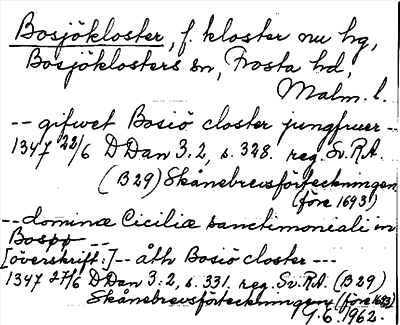 Bosjökloster, f. kloster nu hg,
Bosjöklosters sn, Frosta hd,
Malm. l.
-- gifwet Bosiö closter jungfruer --
1347 22/6 DDan 3:2, s. 328. reg. Sv.R.A.
(B29) Skånebrevsförteckningen
(före 1693)
-- dominæ Ciciliæ sanctimoniali in
Bospø --
[överskrift:]-- åth Bosiö closter ---
1347 27/6 DDan 3:2, s. 331. reg. Sv.R.A. (B29)
Skånebrevsförteckningen (före 1693)
9.6.1962.